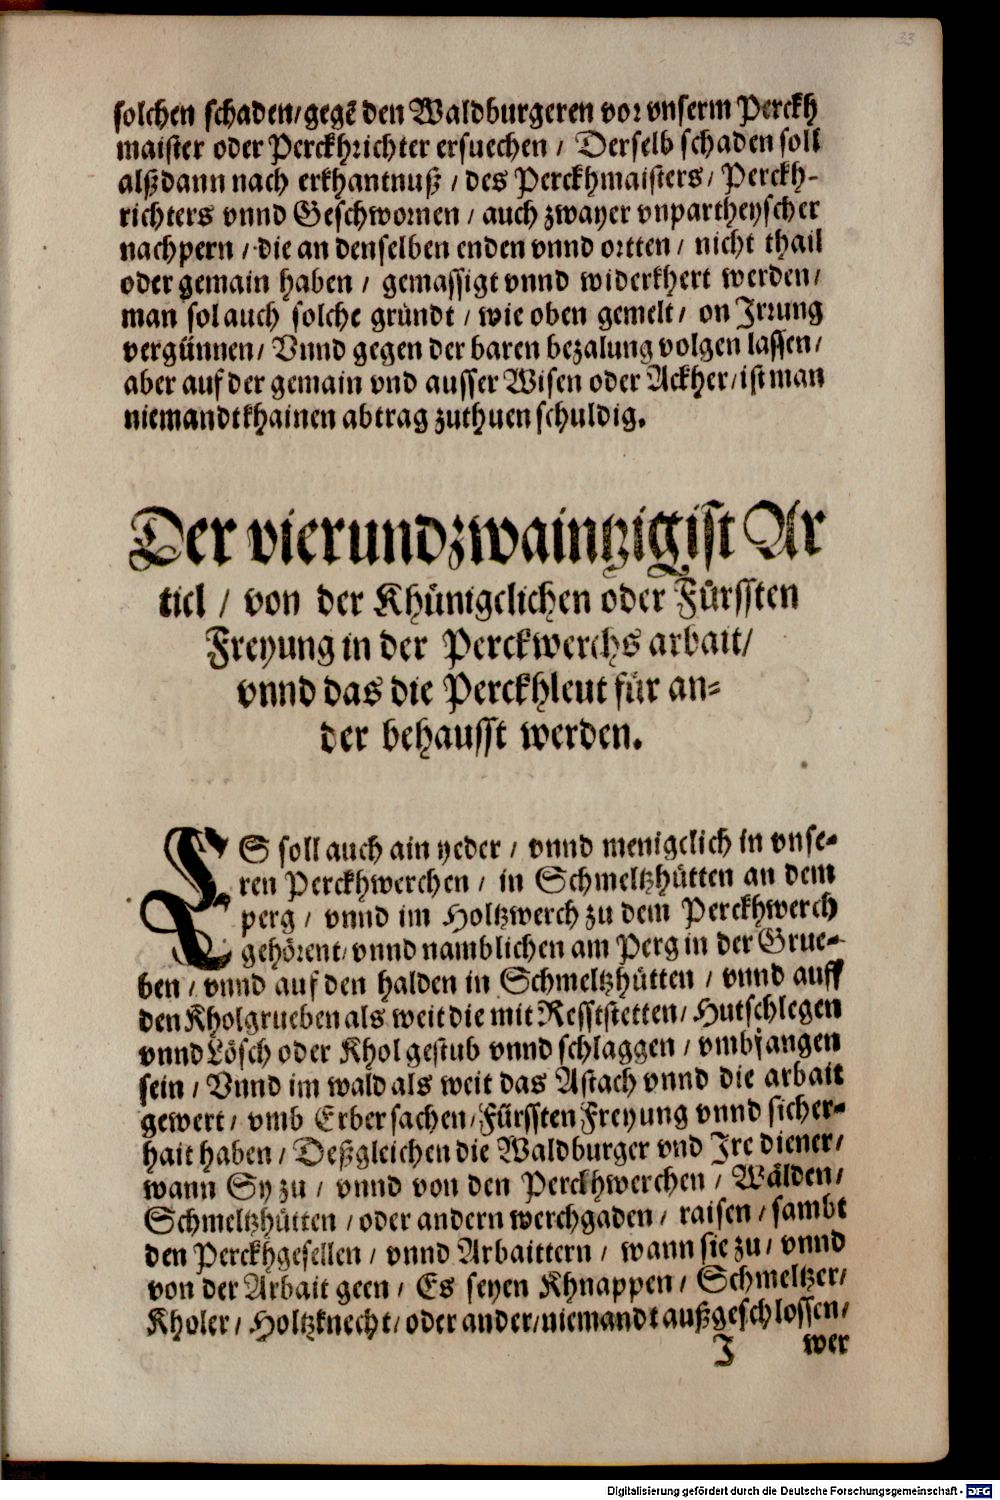 33
solchen schaden/ gegē den Waldburgeren vor vnserm Perckh
maister oder Perckhrichter ersuechen / Derselb schaden soll
alßdann nach erkhantnuß / des Perckhmaisters/ Perckh-
richters vnnd Geschwornen / auch zwayer vnpartheyscher
nachpern / die an denselben enden vnnd ortten / nicht thail
oder gemain haben / gemassigt vnnd widerkhert werden/
man sol auch solche gründt / wie oben gemelt / on Irrung
vergünnen/ Vnnd gegen der baren bezalung volgen lassen/
aber auf der gemain vnd ausser Wisen oder Ackher/ ist man
niemandt khainen abtrag zuthuen schuldig.
Der vierundzwaintzigist Ar
ticl / von der Khünigclichen oder Fürssten
Freyung in der Perckwerchs arbait/
vnnd das die Perckhleut für an-
der behausst werden.
ES soll auch ain yeder / vnnd menigclich in vnse-
ren Perckhwerchen / in Schmeltzhütten an dem
perg / vnnd im Holtzwerch zu dem Perckhwerch
gehörent/ vnnd namblichen am Perg in der Grue-
ben / vnnd auf den halden in Schmeltzhütten / vnnd auff
den Kholgrueben als weit die mit Resststetten/ Hutschlegen
vnnd Lösch oder Khol gestub vnnd schlaggen / vmbfangen
sein / Vnnd im wald als weit das Astach vnnd die arbait
gewert / vmb Erber sachen/ Fürssten Freyung vnnd sicher-
hait haben / Deßgleichen die Waldburger vnd Ire diener/
wann Sy zu / vnnd von den Perckhwerchen / Wälden/
Schmeltzhütten / oder andern werchgaden / raisen / sambt
den Perckhgesellen / vnnd Arbaittern / wann sie zu / vnnd
von der Arbait geen / Es seyen Khnappen / Schmeltzer/
Kholer/ Holtzknecht/ oder ander/ niemandt außgeschlossen/
J wer
Digitalisierung gefördert durch die Deutsche Forschungsgemeinschaft - DFG